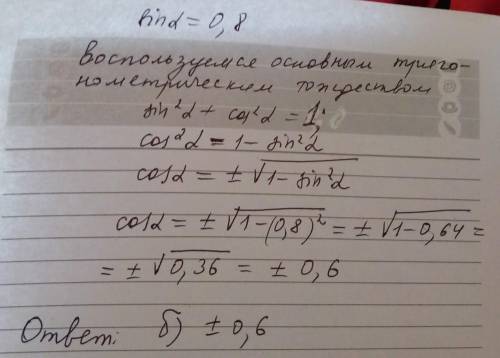 sinα = 0,8
Воспользуемся основным триго-
нометрическим тождеством
sin²α + cos²α = 1;
cos²α = 1 - sin²α
cosα = ± √1 - sin²α
cosα = ± √1-(0,8)² = ± √1-0,64 =
= ± √0,36 = ± 0,6
Ответ: б) ± 0,6